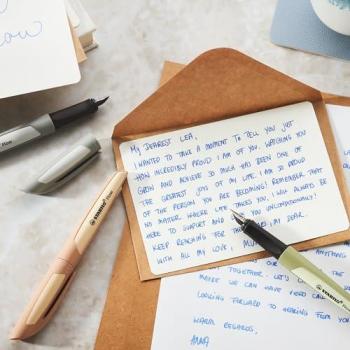 My dearest Lea,
I wanted to take a moment to tell you just
how incredibly proud I am of you. Watching you
grow and achieve so much has been one of
the greatest joys of my life. I am so proud
of the person you are becoming! Remember that
no matter where life takes you, I will always be
here to support and you unconditionally!
Keep reaching for the my dear.
With all my love,
anything
or
together. Let's
maybe we can have
looking forward to hearing from you
Warm regards,
Anna
STABILO
STABILO